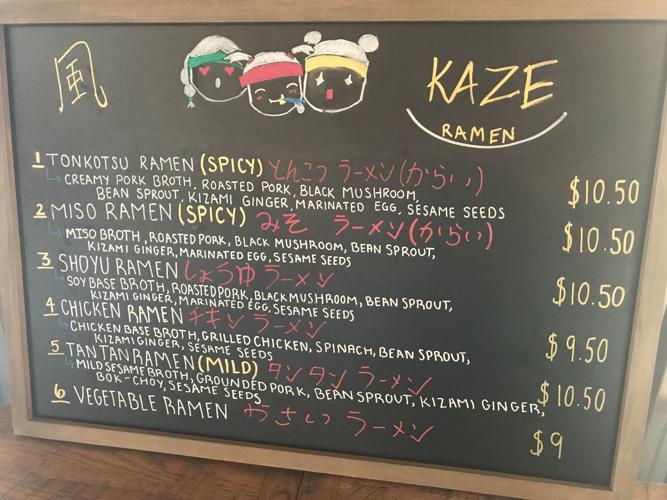 風
KAZE
RAMEN
1 TONKOTSU RAMEN (SPICY) とんこつ ラーメン (からい)
CREAMY PORK BROTH, ROASTED PORK, BLACK MUSHROOM,
BEAN SPROUT, KIZAMI GINGER, MARINATED EGG, SESAME SEEDS
$10.50
2 MISO RAMEN (SPICY) みそ ラーメン (からい)
MISO BROTH, ROASTED PORK, BLACK MUSHROOM, BEAN SPROUT,
KIZAMI GINGER, MARINATED EGG, SESAME SEEDS
$10.50
3 SHOYU RAMEN しょうゆ ラーメン
SOY BASE BROTH, ROASTED PORK, BLACK MUSHROOM, BEAN SPROUT,
KIZAMI GINGER, MARINATED EGG, SESAME SEEDS
$10.50
4 CHICKEN RAMEN チキン ラーメン
CHICKEN BASE BROTH, GRILLED CHICKEN, SPINACH, BEAN SPROUT,
KIZAMI GINGER, SESAME SEEDS
$9.50
5 TAN TAN RAMEN (MILD) タンタン ラーメン
MILD SESAME BROTH, GROUNDED PORK, BEAN SPROUT, KIZAMI GINGER,
BOK-CHOY, SESAME SEEDS
$10.50
6 VEGETABLE RAMEN やさいっ ラーメン
$9